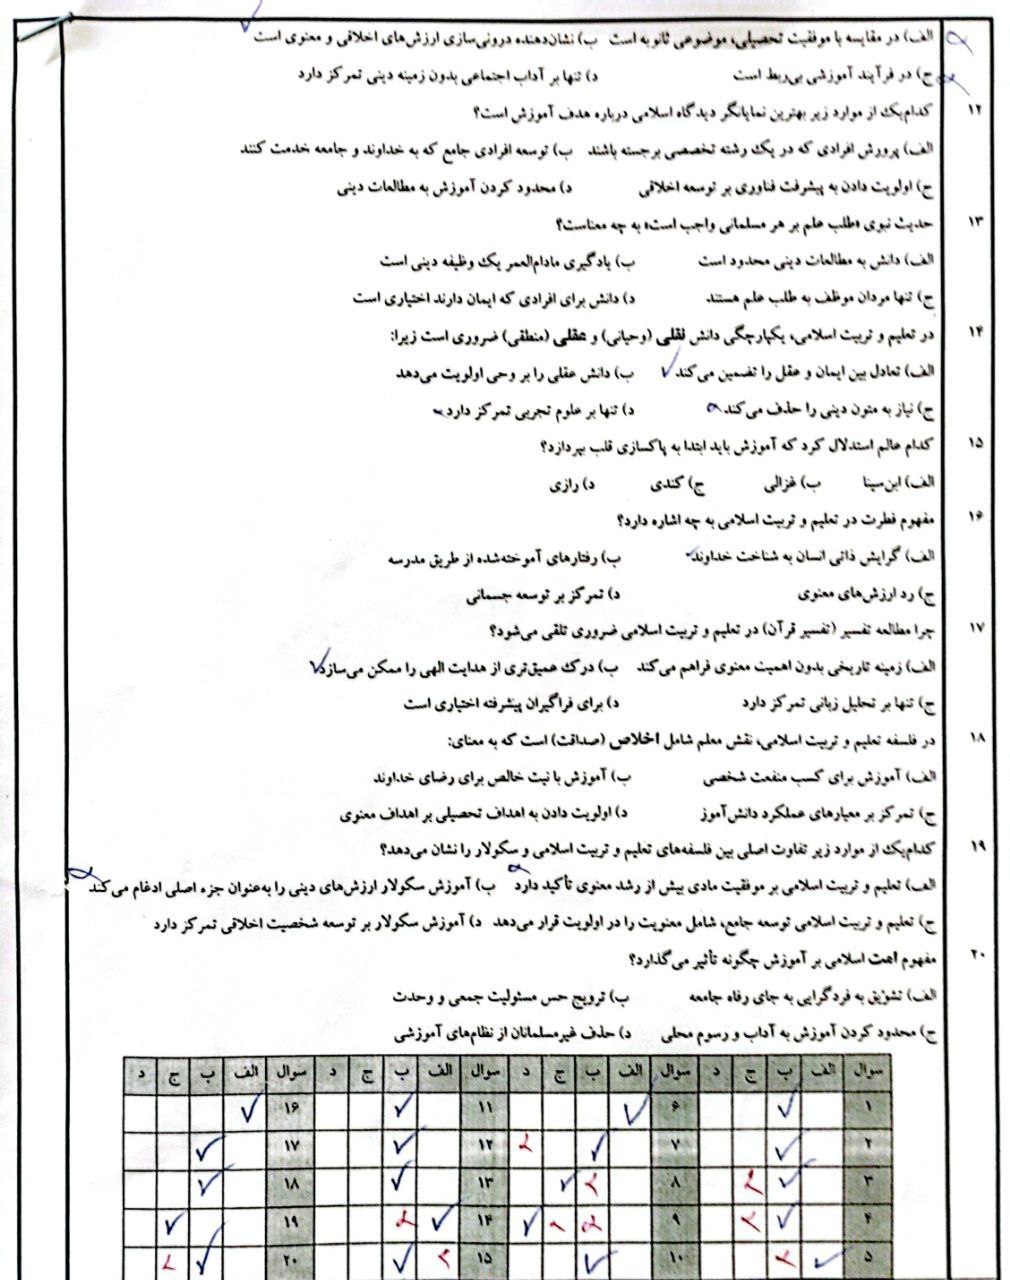 الف) در مقایسه با موفقیت تحصیلی، موضوعی ثانویه است ب) نشان‌دهنده درونی‌سازی ارزش‌های اخلاقی و معنوی است
ج) در فرآیند آموزشی بی‌ربط است د) تنها بر آداب اجتماعی بدون زمینه دینی تمرکز دارد
۱۲ کدام‌یک از موارد زیر بهترین نمایانگر دیدگاه اسلامی درباره هدف آموزش است؟
الف) پرورش افرادی که در یک رشته تخصصی برجسته باشند ب) توسعه افرادی جامع که به خداوند و جامعه خدمت کنند
ج) اولویت دادن به پیشرفت فناوری بر توسعه اخلاقی د) محدود کردن آموزش به مطالعات دینی
۱۳ حدیث نبوی «طلب علم بر هر مسلمانی واجب است» به چه معناست؟
الف) دانش به مطالعات دینی محدود است ب) یادگیری مادام‌العمر یک وظیفه دینی است
ج) تنها مردان موظف به طلب علم هستند د) دانش برای افرادی که ایمان دارند اختیاری است
۱۴ در تعلیم و تربیت اسلامی، یکپارچگی دانش نقلی (وحیانی) و عقلی (منطقی) ضروری است زیرا:
الف) تعادل بین ایمان و عقل را تضمین می‌کند ب) دانش عقلی را بر وحی اولویت می‌دهد
ج) نیاز به متون دینی را حذف می‌کند د) تنها بر علوم تجربی تمرکز دارد
۱۵ کدام عالم استدلال کرد که آموزش باید ابتدا به پاکسازی قلب بپردازد؟
الف) ابن‌سینا ب) غزالی ج) کندی د) رازی
۱۶ مفهوم فطرت در تعلیم و تربیت اسلامی به چه اشاره دارد؟
الف) گرایش ذاتی انسان به شناخت خداوند ب) رفتارهای آموخته‌شده از طریق مدرسه
ج) رد ارزش‌های معنوی د) تمرکز بر توسعه جسمانی
۱۷ چرا مطالعه تفسیر (تفسیر قرآن) در تعلیم و تربیت اسلامی ضروری تلقی می‌شود؟
الف) زمینه تاریخی بدون اهمیت معنوی فراهم می‌کند ب) درک عمیق‌تری از هدایت الهی را ممکن می‌سازد
ج) تنها بر تحلیل زبانی تمرکز دارد د) برای فراگیران پیشرفته اختیاری است
۱۸ در فلسفه تعلیم و تربیت اسلامی، نقش معلم شامل اخلاص (صداقت) است که به معنای:
الف) آموزش برای کسب منفعت شخصی ب) آموزش با نیت خالص برای رضای خداوند
ج) تمرکز بر معیارهای عملکرد دانش‌آموز د) اولویت دادن به اهداف تحصیلی بر اهداف معنوی
۱۹ کدام‌یک از موارد زیر تفاوت اصلی بین فلسفه‌های تعلیم و تربیت اسلامی و سکولار را نشان می‌دهد؟
الف) تعلیم و تربیت اسلامی بر موفقیت مادی بیش از رشد معنوی تأکید دارد ب) آموزش سکولار ارزش‌های دینی را به‌عنوان جزء اصلی ادغام می‌کند
ج) تعلیم و تربیت اسلامی توسعه جامع، شامل معنویت را در اولویت قرار می‌دهد د) آموزش سکولار بر توسعه شخصیت اخلاقی تمرکز دارد
۲۰ مفهوم امت اسلامی بر آموزش چگونه تأثیر می‌گذارد؟
الف) تشویق به فردگرایی به جای رفاه جامعه ب) ترویج حس مسئولیت جمعی و وحدت
ج) محدود کردن آموزش به آداب و رسوم محلی د) حذف غیرمسلمانان از نظام‌های آموزشی
سوال الف ب ج د سوال الف ب ج د سوال الف ب ج د سوال الف ب ج د
۱ ۶ ۱۱ ۱۶
۲ ۷ ۱۲ ۱۷
۳ ۸ ۱۳ ۱۸
۴ ۹ ۱۴ ۱۹
۵ ۱۰ ۱۵ ۲۰